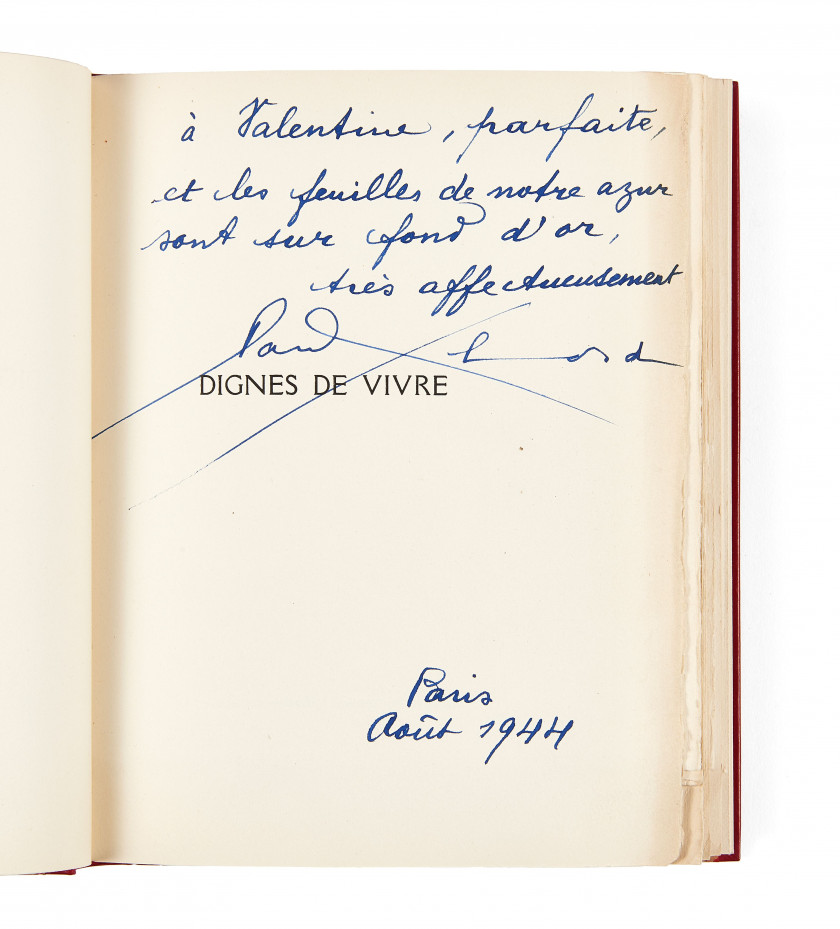 à Valentine, parfaite,
et les feuilles de notre azur
sont sur fond d'or,
très affectueusement
Paul Eluard
DIGNES DE VIVRE
Paris
Août 1944